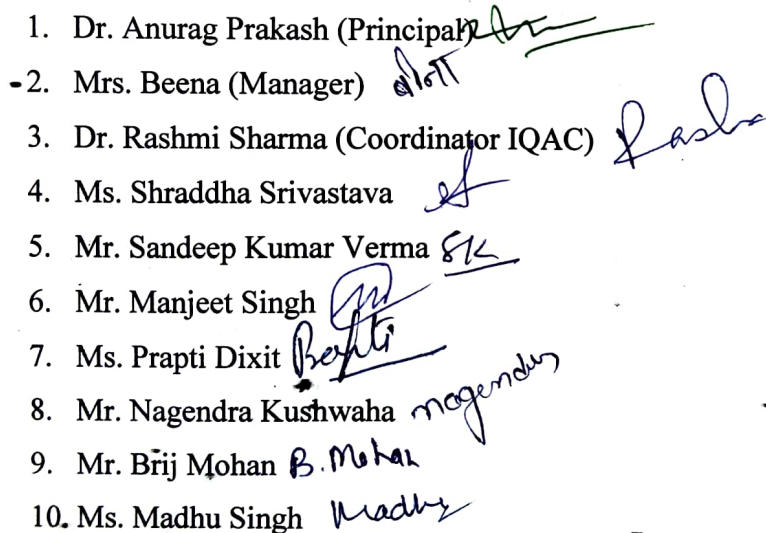 1. Dr. Anurag Prakash (Principal)
-2. Mrs. Beena (Manager) बीना
3. Dr. Rashmi Sharma (Coordinator IQAC) Rash
4. Ms. Shraddha Srivastava
5. Mr. Sandeep Kumar Verma SK
6. Mr. Manjeet Singh
7. Ms. Prapti Dixit Prapti
8. Mr. Nagendra Kushwaha nagendra
9. Mr. Brij Mohan B. Mohan
10. Ms. Madhu Singh Madhu